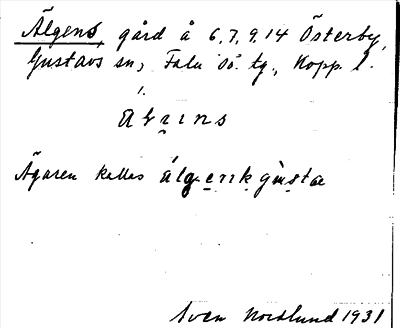 Älgens, gård å 6,7,9,14 Österby,
Gustavs sn, Falu Sö. tg., Kopp. l.
Ägaren kallas álgenkgùsta
Sven Nordlund 1931